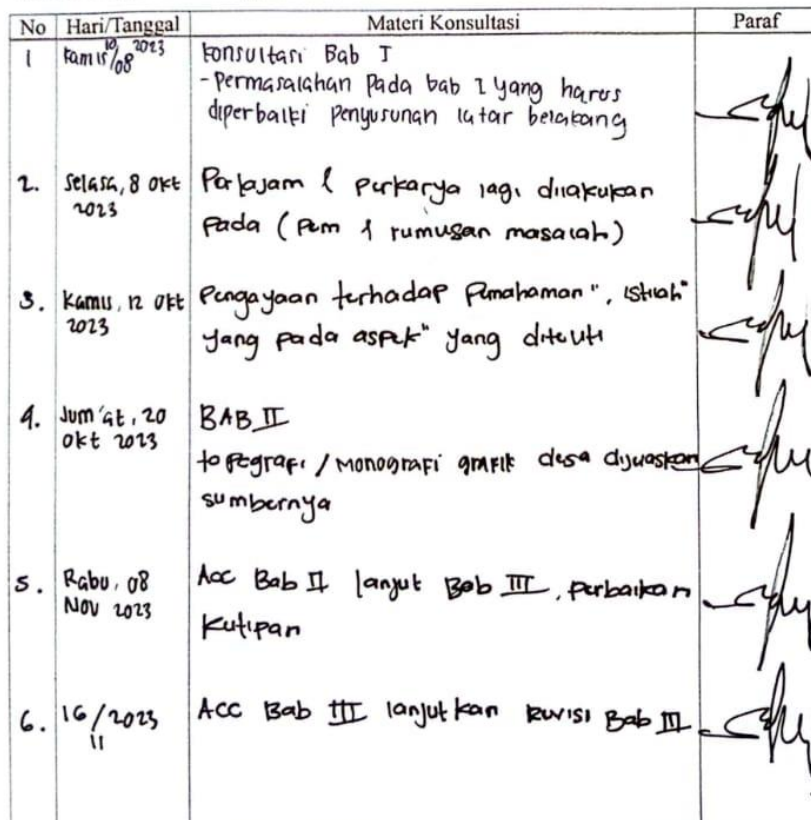 No Hari/Tanggal Materi Konsultasi Paraf
1 Kamis 10/08 2023 Konsultasi Bab I
- Permasalahan Pada bab I yang harus
diperbaiki penyusunan latar belakang
2. Selasa, 8 Okt Pertajam & perkarya lagi dilakukan
2023 Pada ( rumusan masalah)
3. Kamis, 12 Okt Pengayaan terhadap Pemahaman", istilah"
2023 yang pada aspek" yang diteliti
4. Jum'at, 20 BAB II
Okt 2023 topografi / Monografi grafik desa dijelaskan
sumbernya
5. Rabu, 08 Acc Bab II lanjut Bab III, perbaikan
Nov 2023 Kutipan
6. 16/2023 Acc Bab III lanjutkan Revisi Bab III
11